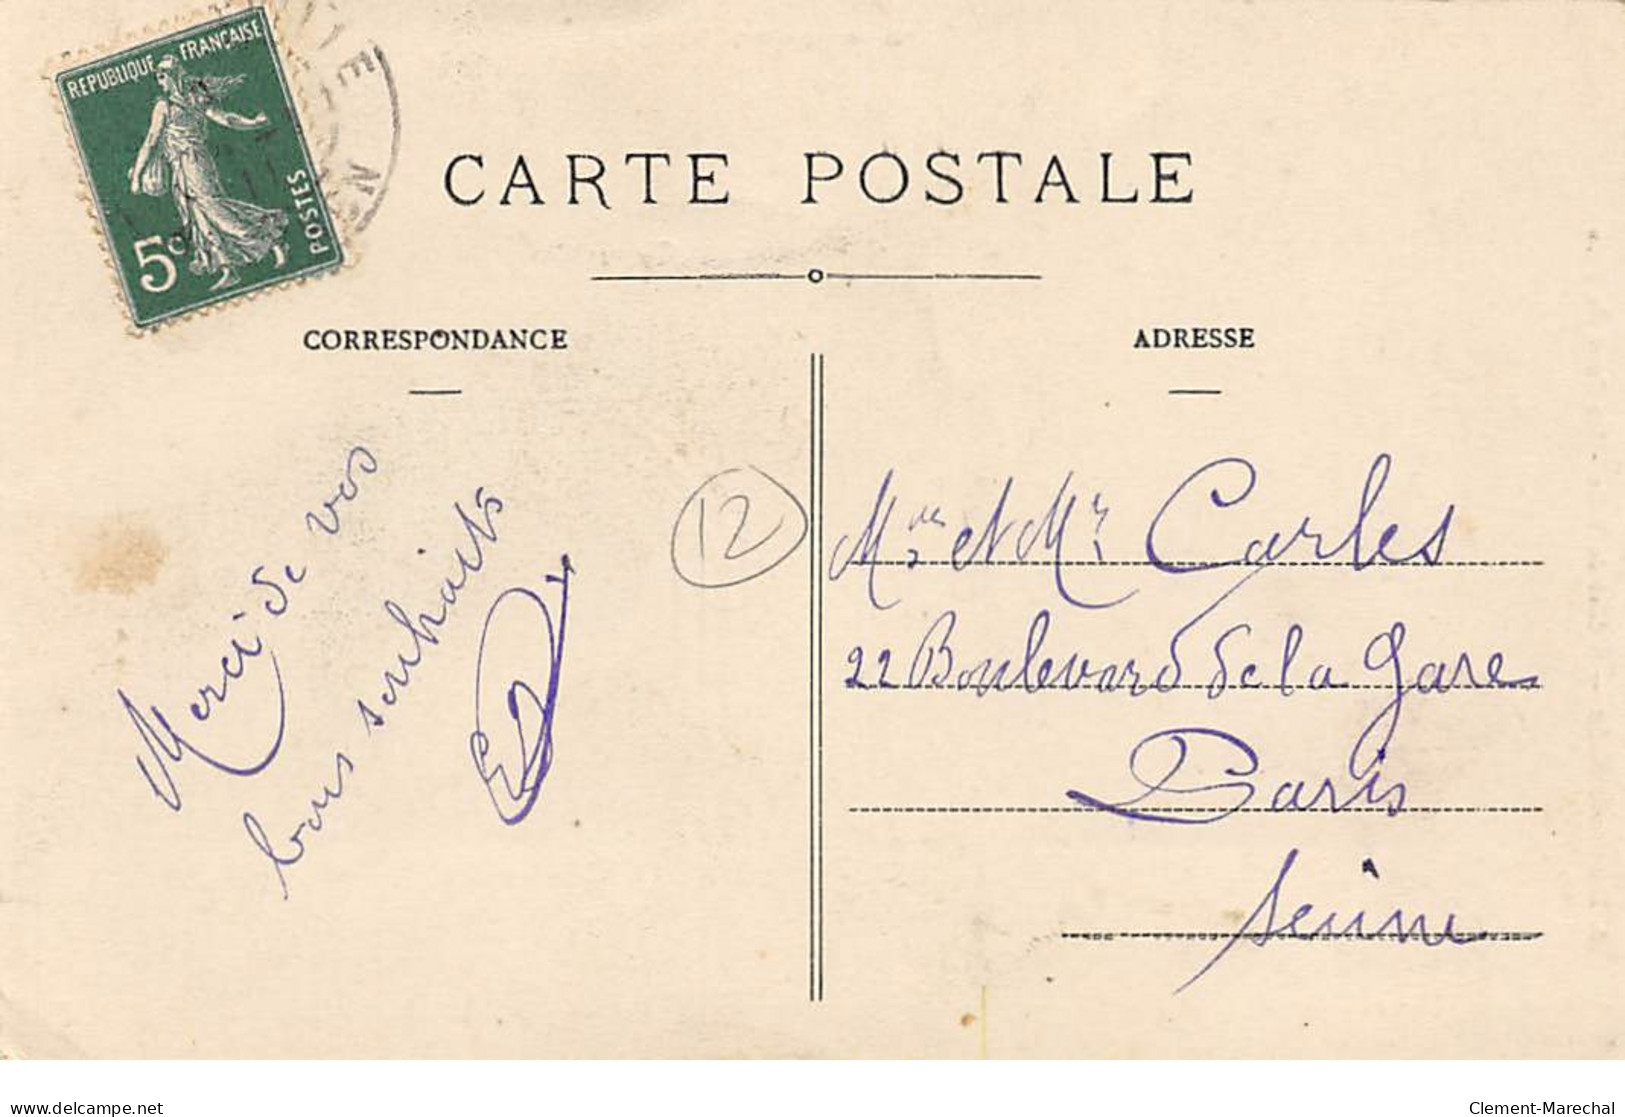 REPUBLIQUE FRANÇAISE
POSTES
5c
CARTE POSTALE
CORRESPONDANCE
ADRESSE
Merci de vos
bons souhaits
12
Mme et Mr Carles
22 Boulevard de la gare
Paris
Seine
delcampe.net
Clement-Marechal